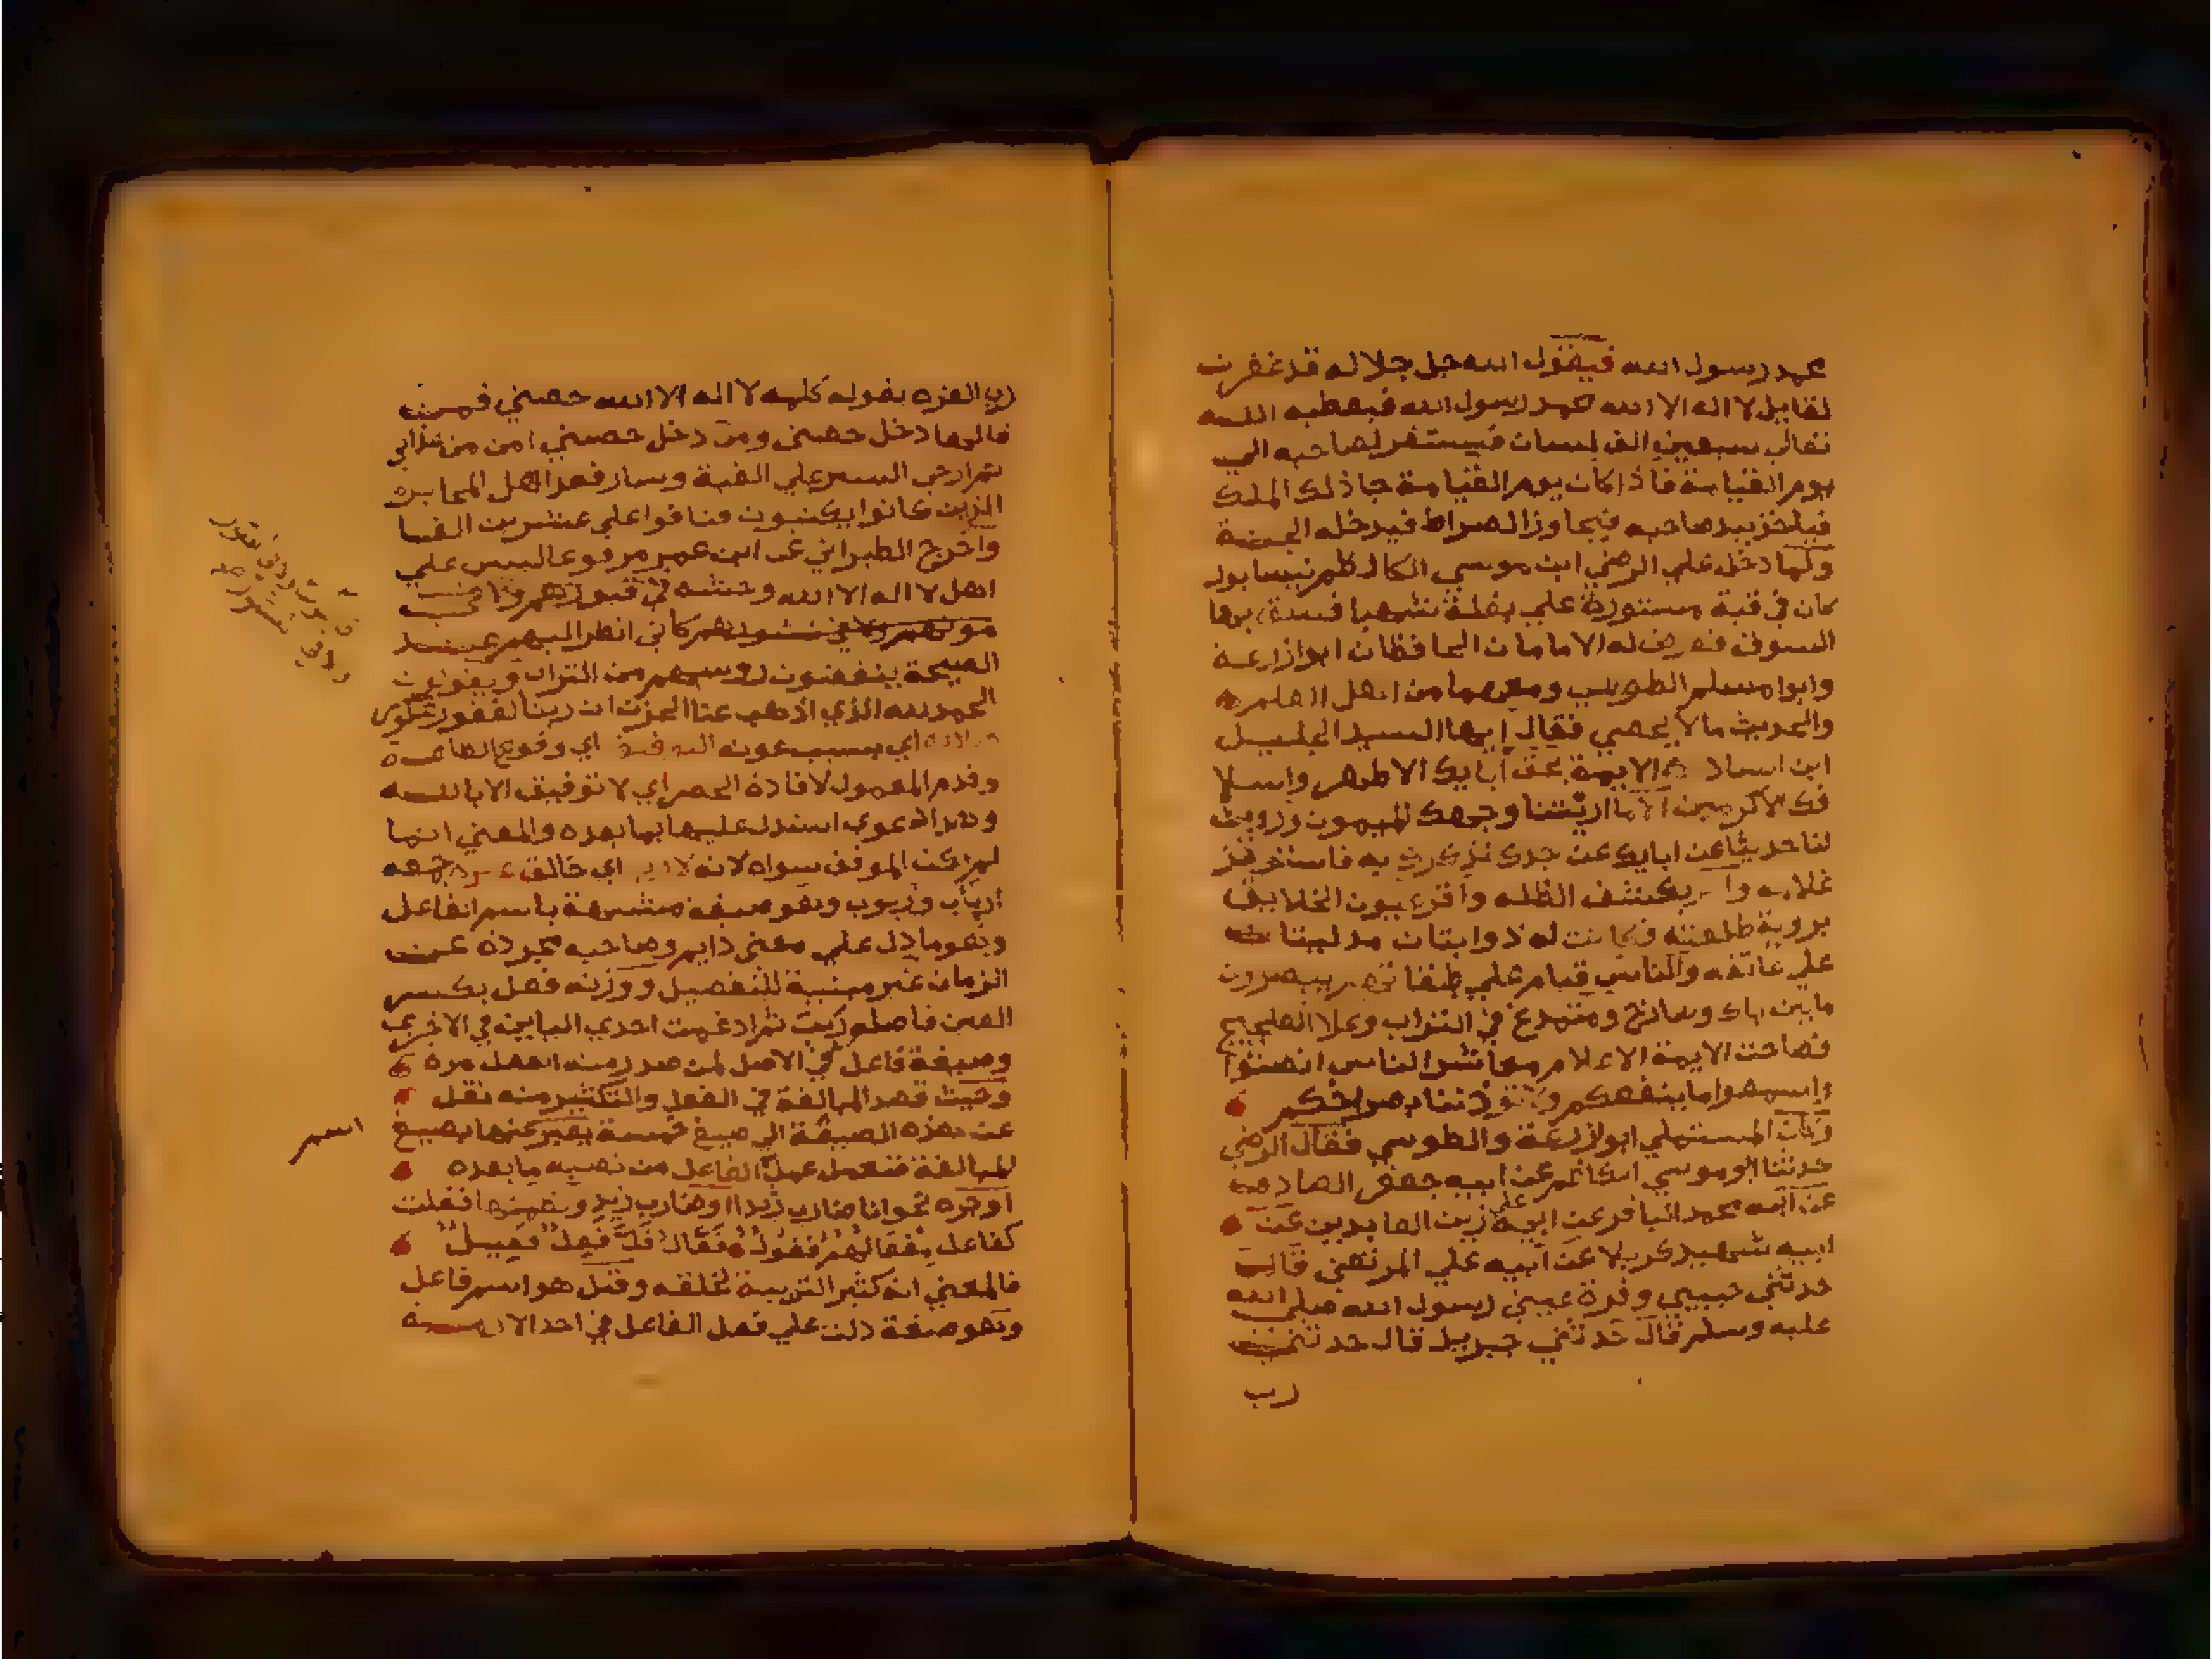 محمد رسول الله فيقول الله جل جلاله قد غفرت
لقايل لا اله الا الله محمد رسول الله فيعطيه الله
تعالي سبعين الف لسان فيستغفر لصاحبه الي
يوم القيامة فاذا كان يوم القيامة جا ذلك الملك
فياخذ بيد صاحبه فيجاوز الصراط فيدخله الجنة
ولما دخل علي الرضي ابن موسي الكاظم نيسابور
كان في قبة مستورة علي بغلة شهبا بها
السوق فعرض له الامامان الحافظان ابوازرعة
وابوا مسلم الطوسي ومعهما من اهل العلم
والحديث ما لا يحصي فقال ايها السيد الجليل
ابن الايمة بحق ابايك الاطهر واسلا
فك الاكرمين الا ما اريتنا وجهك الميمون ورويت
لنا حديثا عن ابايك عن جدك نذكرك به فاستوقف
غلامه بكشف الظله واقر عيون الخلايق
بروية طلعته فكانت له ذوابتان مدليتان
علي عاتقه والناس قيام علي طبقاتهم يبصرون
ما بين باك وصارخ ومتمرغ في التراب وعلا الضجيج
فصاحت الايمة الاعلام معاشر الناس انصتوا
واسمعوا ما ينفعكم ولا توذوننا بصراخكم
وكان المستملي ابوازرعة والطوسي فقال الرضي
حدثنا ابو موسي الكاظم عن ابيه جعفر الصادق
عن ابيه محمد الباقر عن ابيه علي زين العابدين عن
ابيه شهيد كربلا عن ابيه علي المرتضي قال
حدثني حبيبي وقرة عيني رسول الله صلي الله
عليه وسلم قال حدثني جبريل قال حدثني
رب
رب العزه بقوله كلمه لا اله الا الله حصني فمن
قالها دخل حصني ومن دخل حصني امن من عذابي
ثم ارخي الستر علي القبة وسار فعد اهل المحابره
الذين كانوا يكتبون فنافوا علي عشرين الفا
واخرج الطبراني عن ابن عمر مرفوعا ليس علي
اهل لا اله الا الله وحشه في قبورهم ولا في
موتهم ولا في نشورهم كاني انظر اليهم عند
الصيحة ينفضون روسهم من التراب ويقولون
الحمد لله الذي اذهب عنا الحزن ان ربنا لغفور شكور
اي بسبب عونه التوفيق اي وقوع الطاعة
وقدم المعمول لافادة الحصر اي لا توفيق الا بالله
وهذا دعوي استدل عليها بما بعده والمعني انما
لم يكن الموفق سواه لانه لا رب اي خالق غيره جمعه
ارباب وربوب وهو صيغه مشبهة باسم الفاعل
وهو ما دل علي معني دايم وصاحبه مجردة عن
الزمان غير مبنية للتفضيل ووزنه فعل بكسر
العين فاصله ربب ثم ادغمت احدي البايين في الاخري
وصيغة فاعل في الاصل لمن صدر منه الفعل مره
وحيث قصد المبالغة في الفعل والتكثير منه نقل
عن هذه الصيغة الي صيغ خمسة يعبر عنها بصيغ
المبالغة فتعمل عمل الفاعل من نصبه ما بعده
اوجره نحو انا ضارب زيدا اوضارب زيد
كفاعل مفعال فعول فعال فعل فعيل
فالمعني انه كثير التربية لخلقه وقيل هو اسم فاعل
وهو صفة دلت علي فعل الفاعل في احد الازمنة
اسم